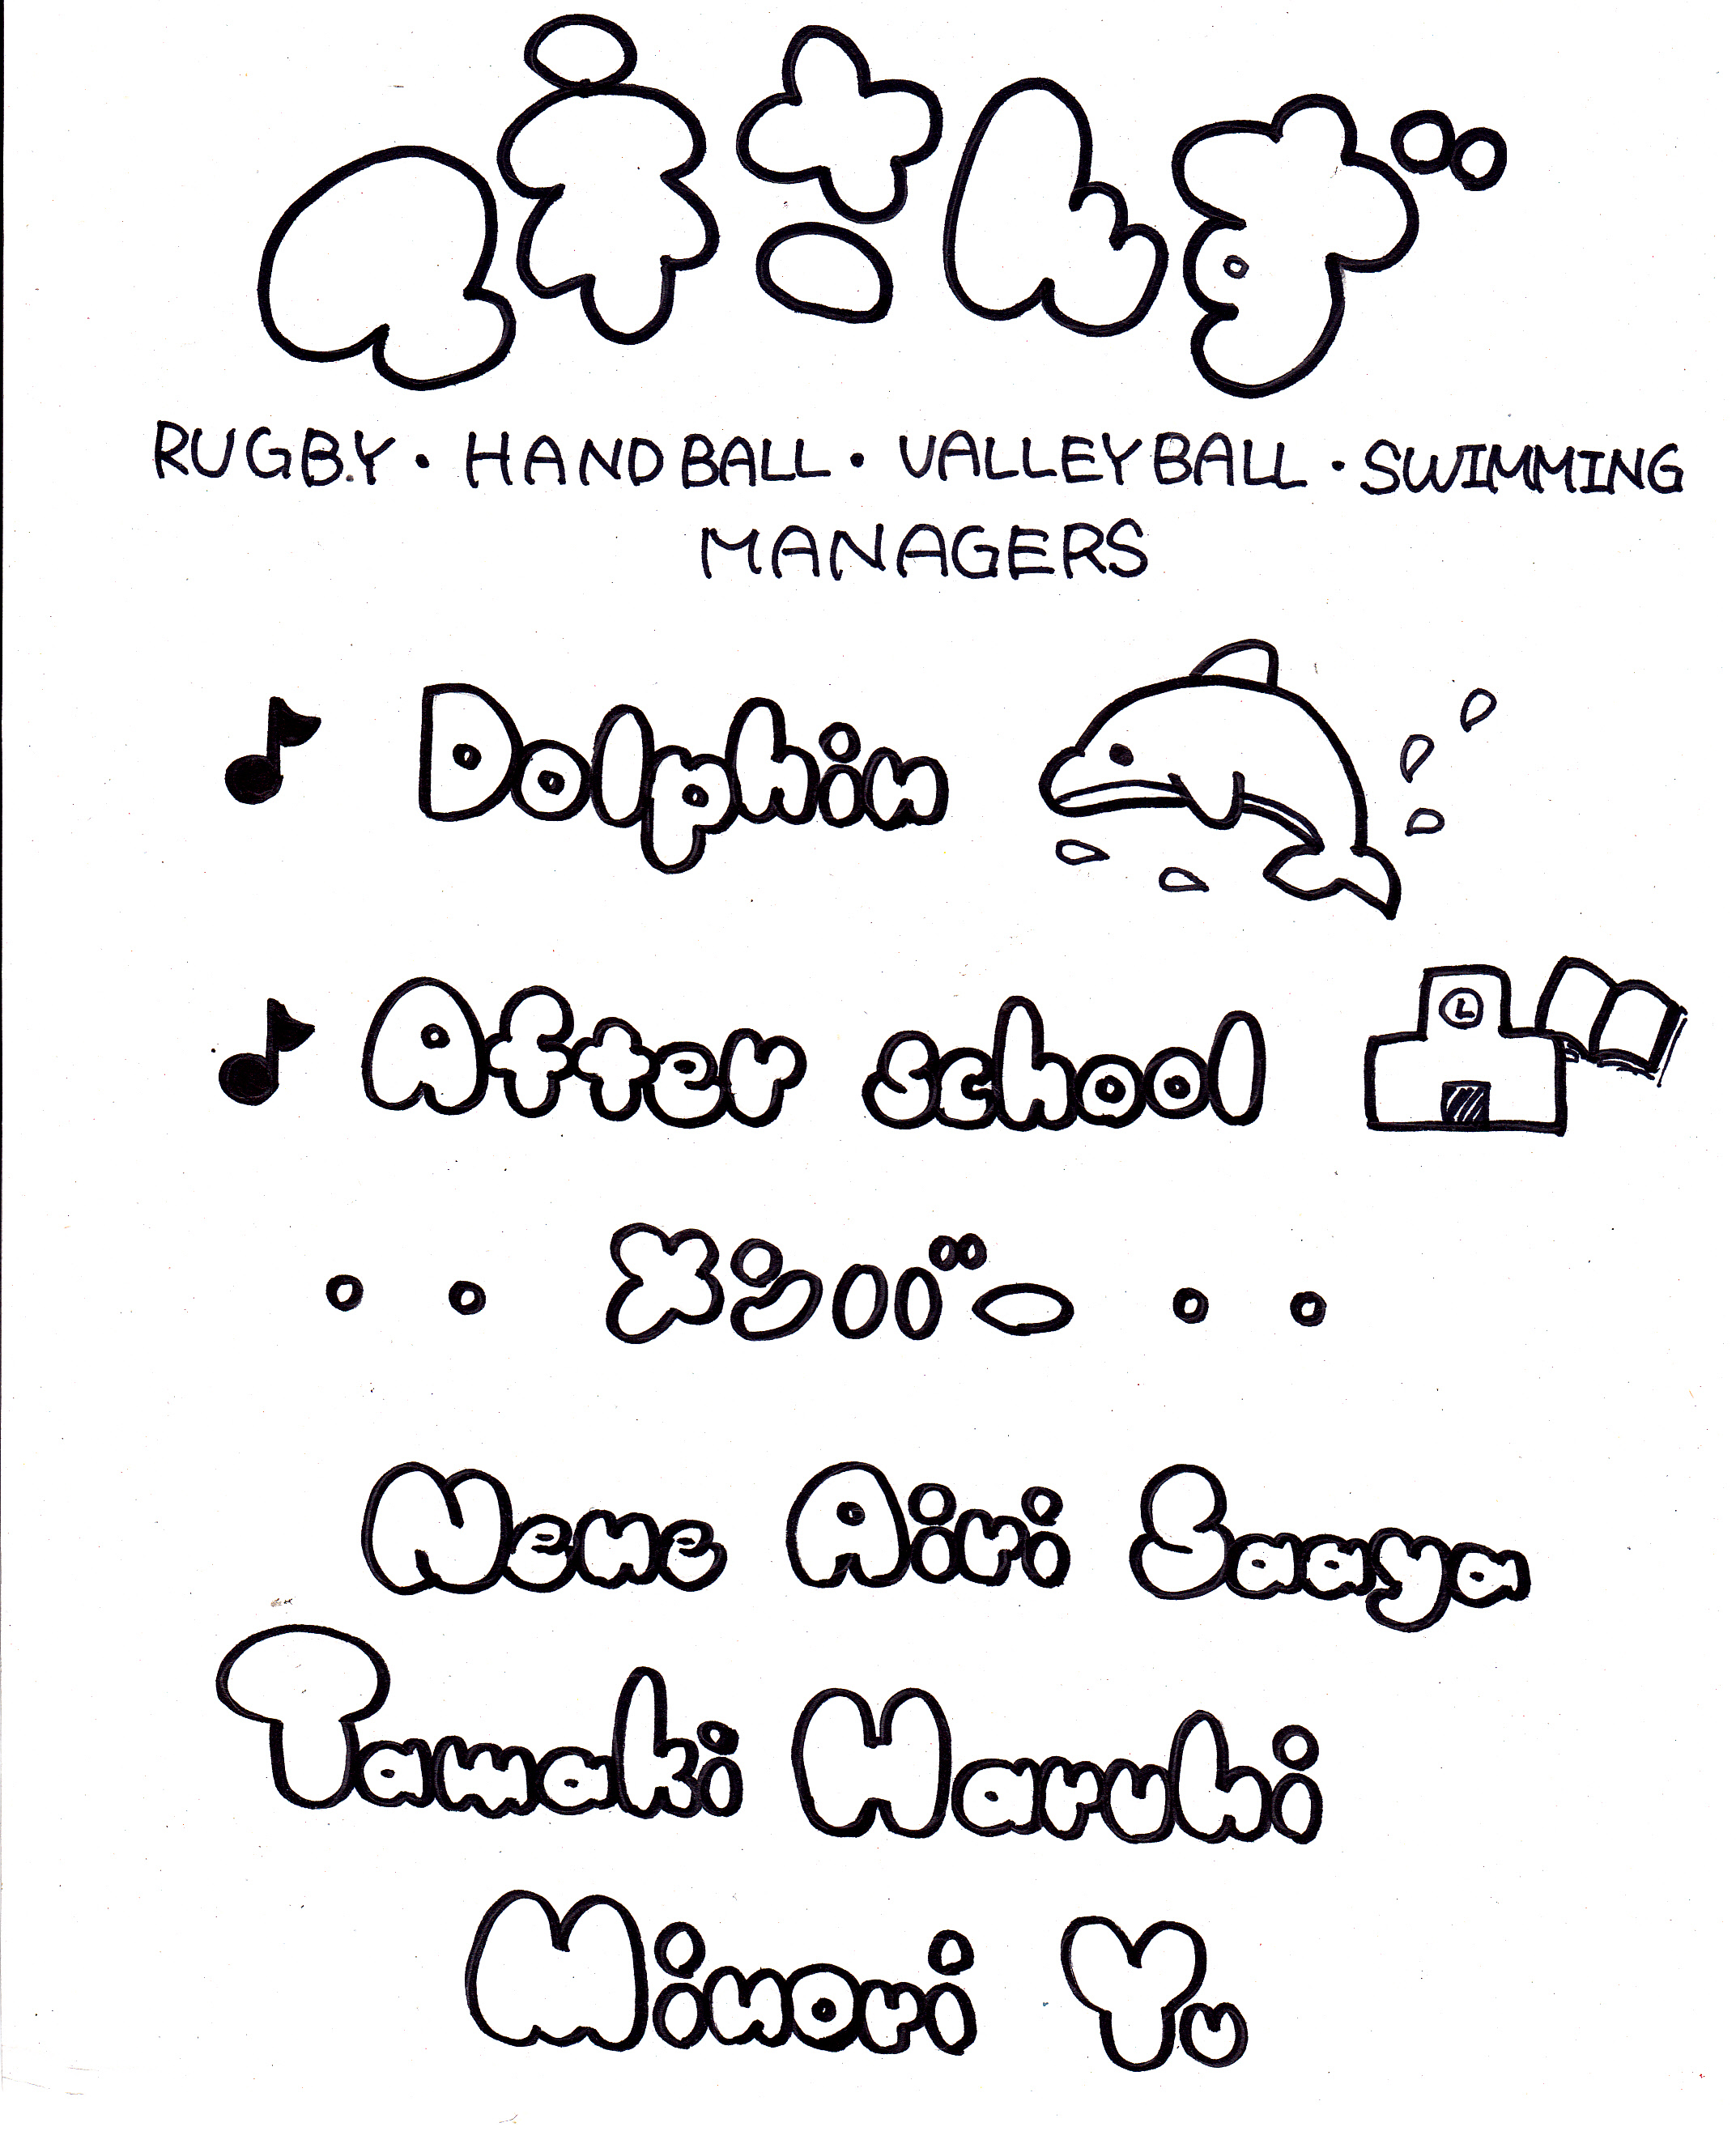 RUGBY・HANDBALL・VALLEYBALL・SWIMMING
MANAGERS
♪ Dolphin
♪ After school
・ ・ メンバー ・ ・
Nene Airi Saaya
Tamaki Haruhi
Minori Yu